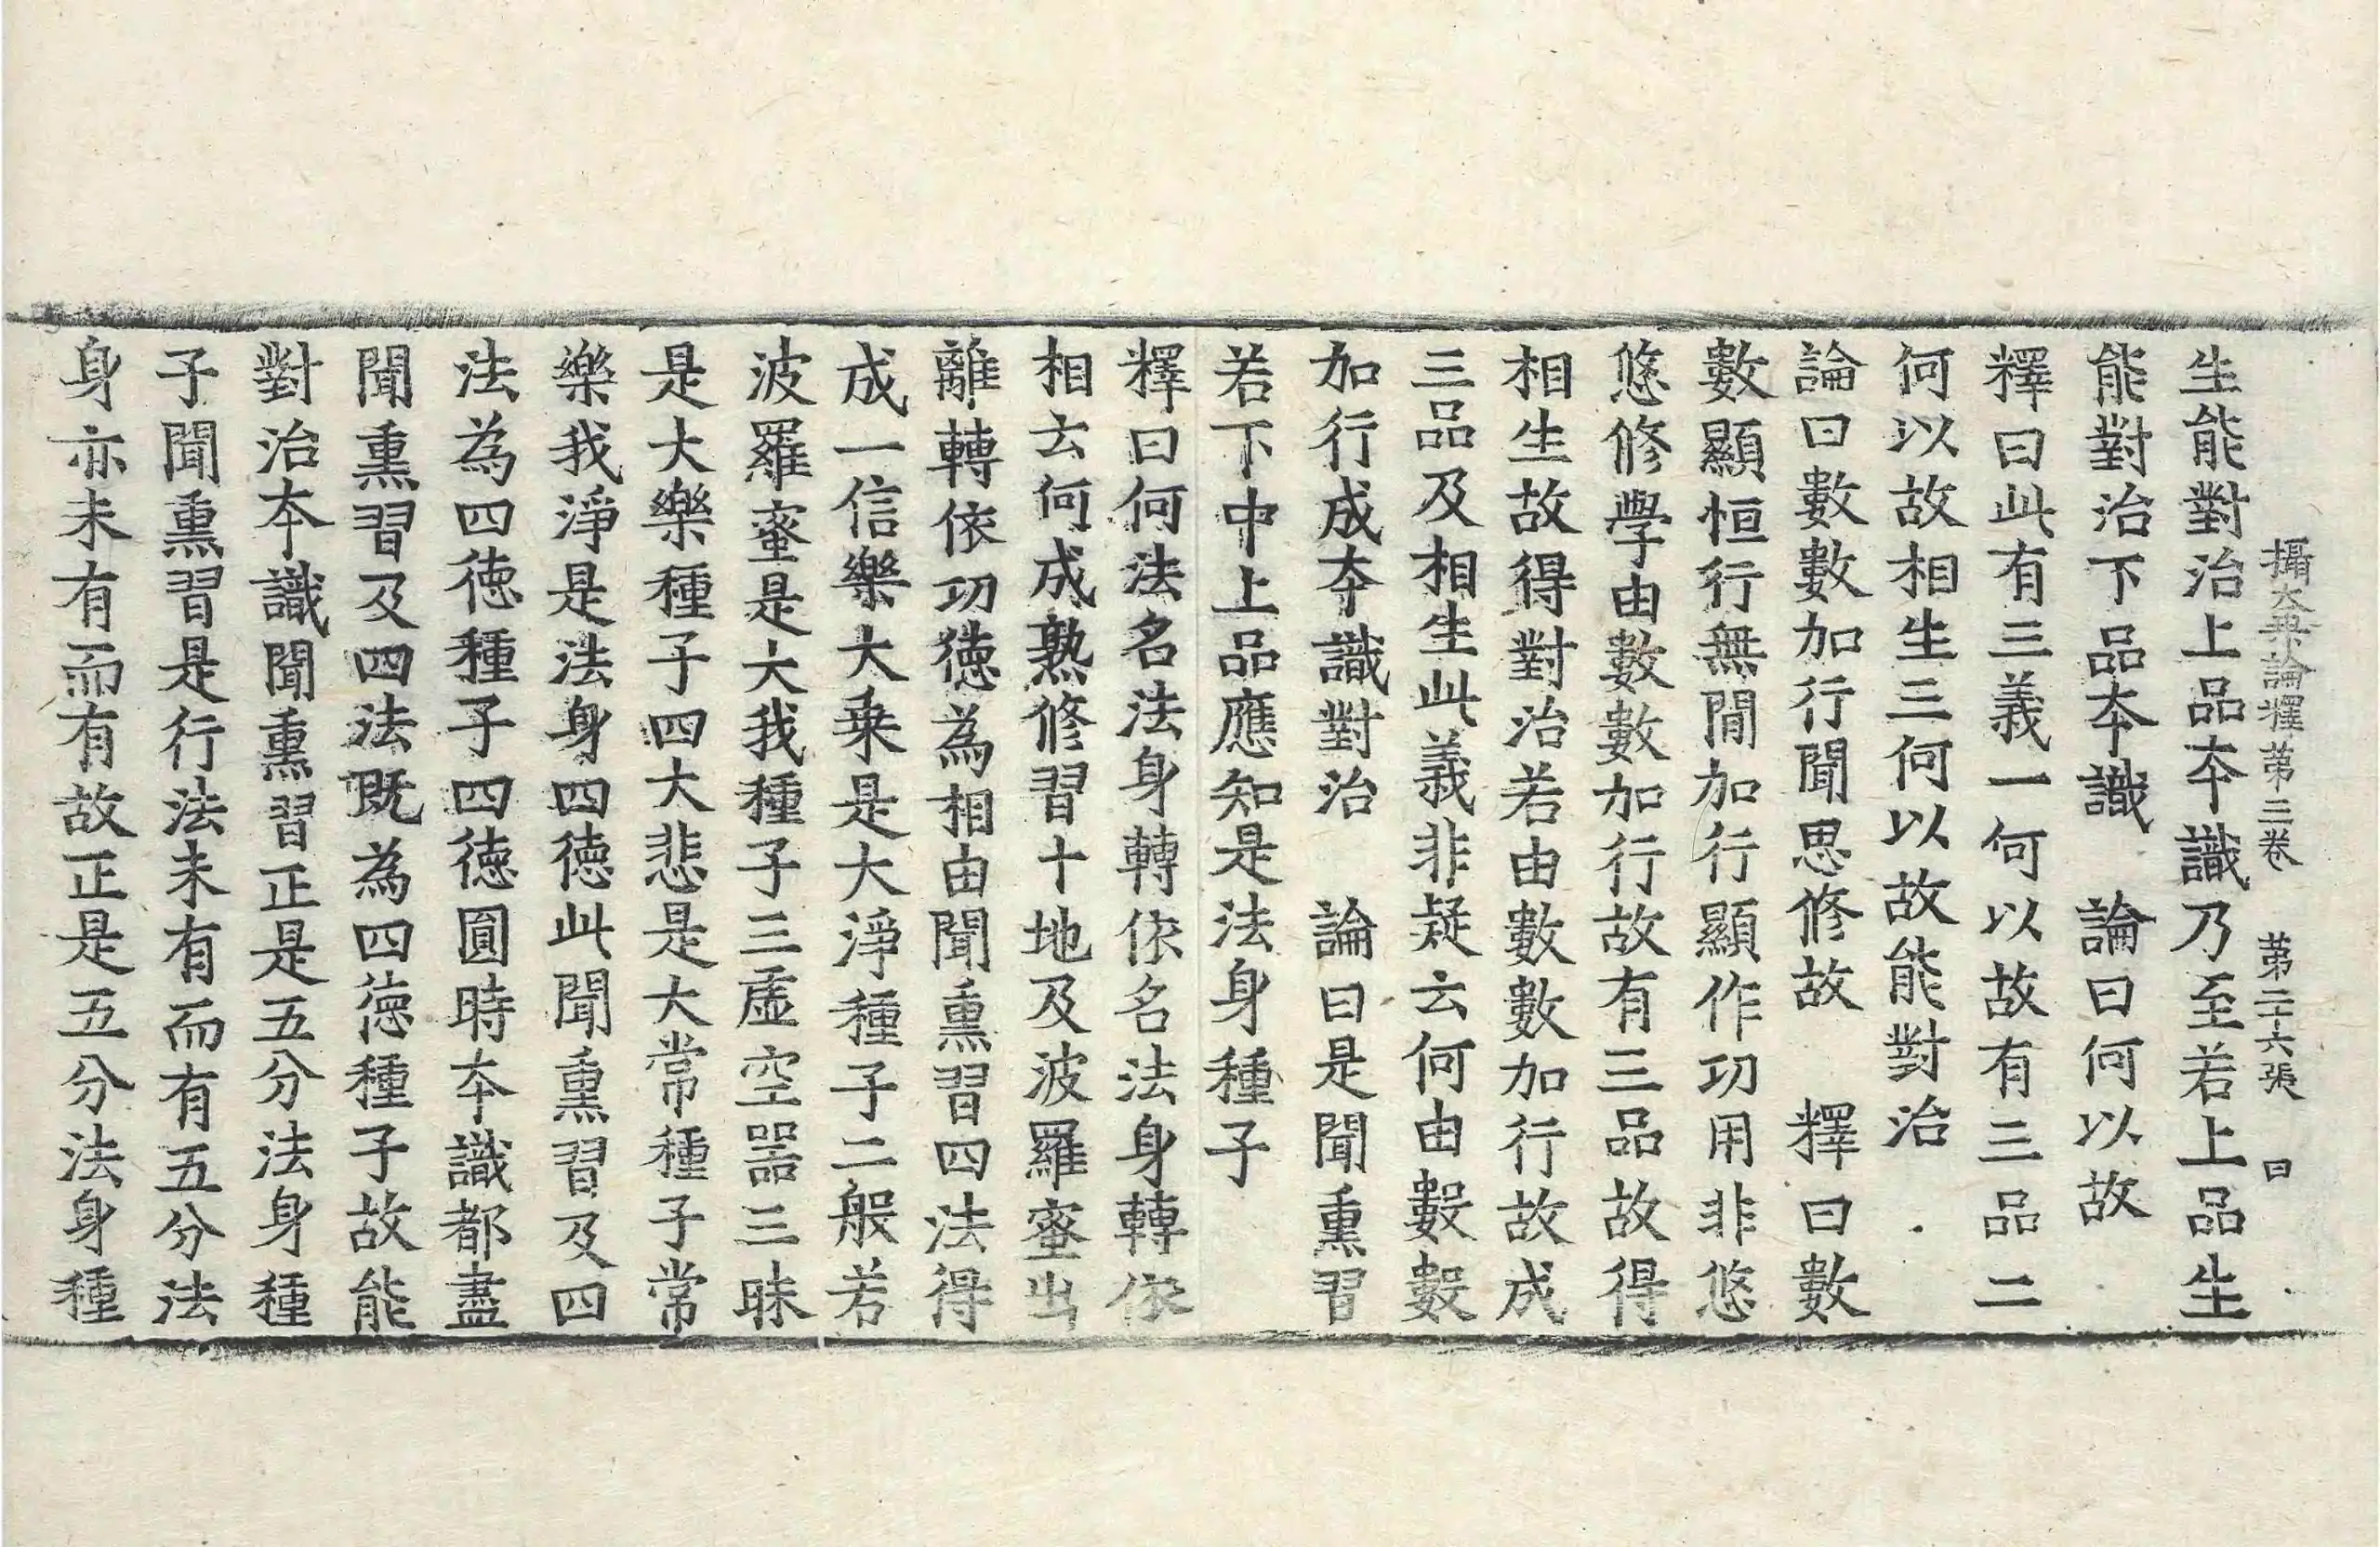 攝大乘論釋第三卷　第二十六張　曰
生能對治上品本識乃至若上品生
能對治下品本識　論曰何以故
釋曰此有三義一何以故有三品二
何以故相生三何以故能對治
論曰數數加行聞思修故　釋曰數
數顯恒行無閒加行顯作功用非悠
悠修學由數數加行故有三品故得
相生故得對治若由數數加行故成
三品及相生此義非疑云何由數數
加行成本識對治　論曰是聞熏習
若下中上品應知是法身種子
釋曰何法名法身轉依名法身轉依
相云何成熟修習十地及波羅蜜出
離轉依功德為相由聞熏習四法得
成一信樂大乘是大淨種子二般若
波羅蜜是大我種子三虛空器三昧
是大樂種子四大悲是大常種子常
樂我淨是法身四德此聞熏習及四
法為四德種子四德圓時本識都盡
聞熏習及四法既為四德種子故能
對治本識聞熏習正是五分法身種
子聞熏習是行法未有而有五分法
身亦未有而有故正是五分法身種